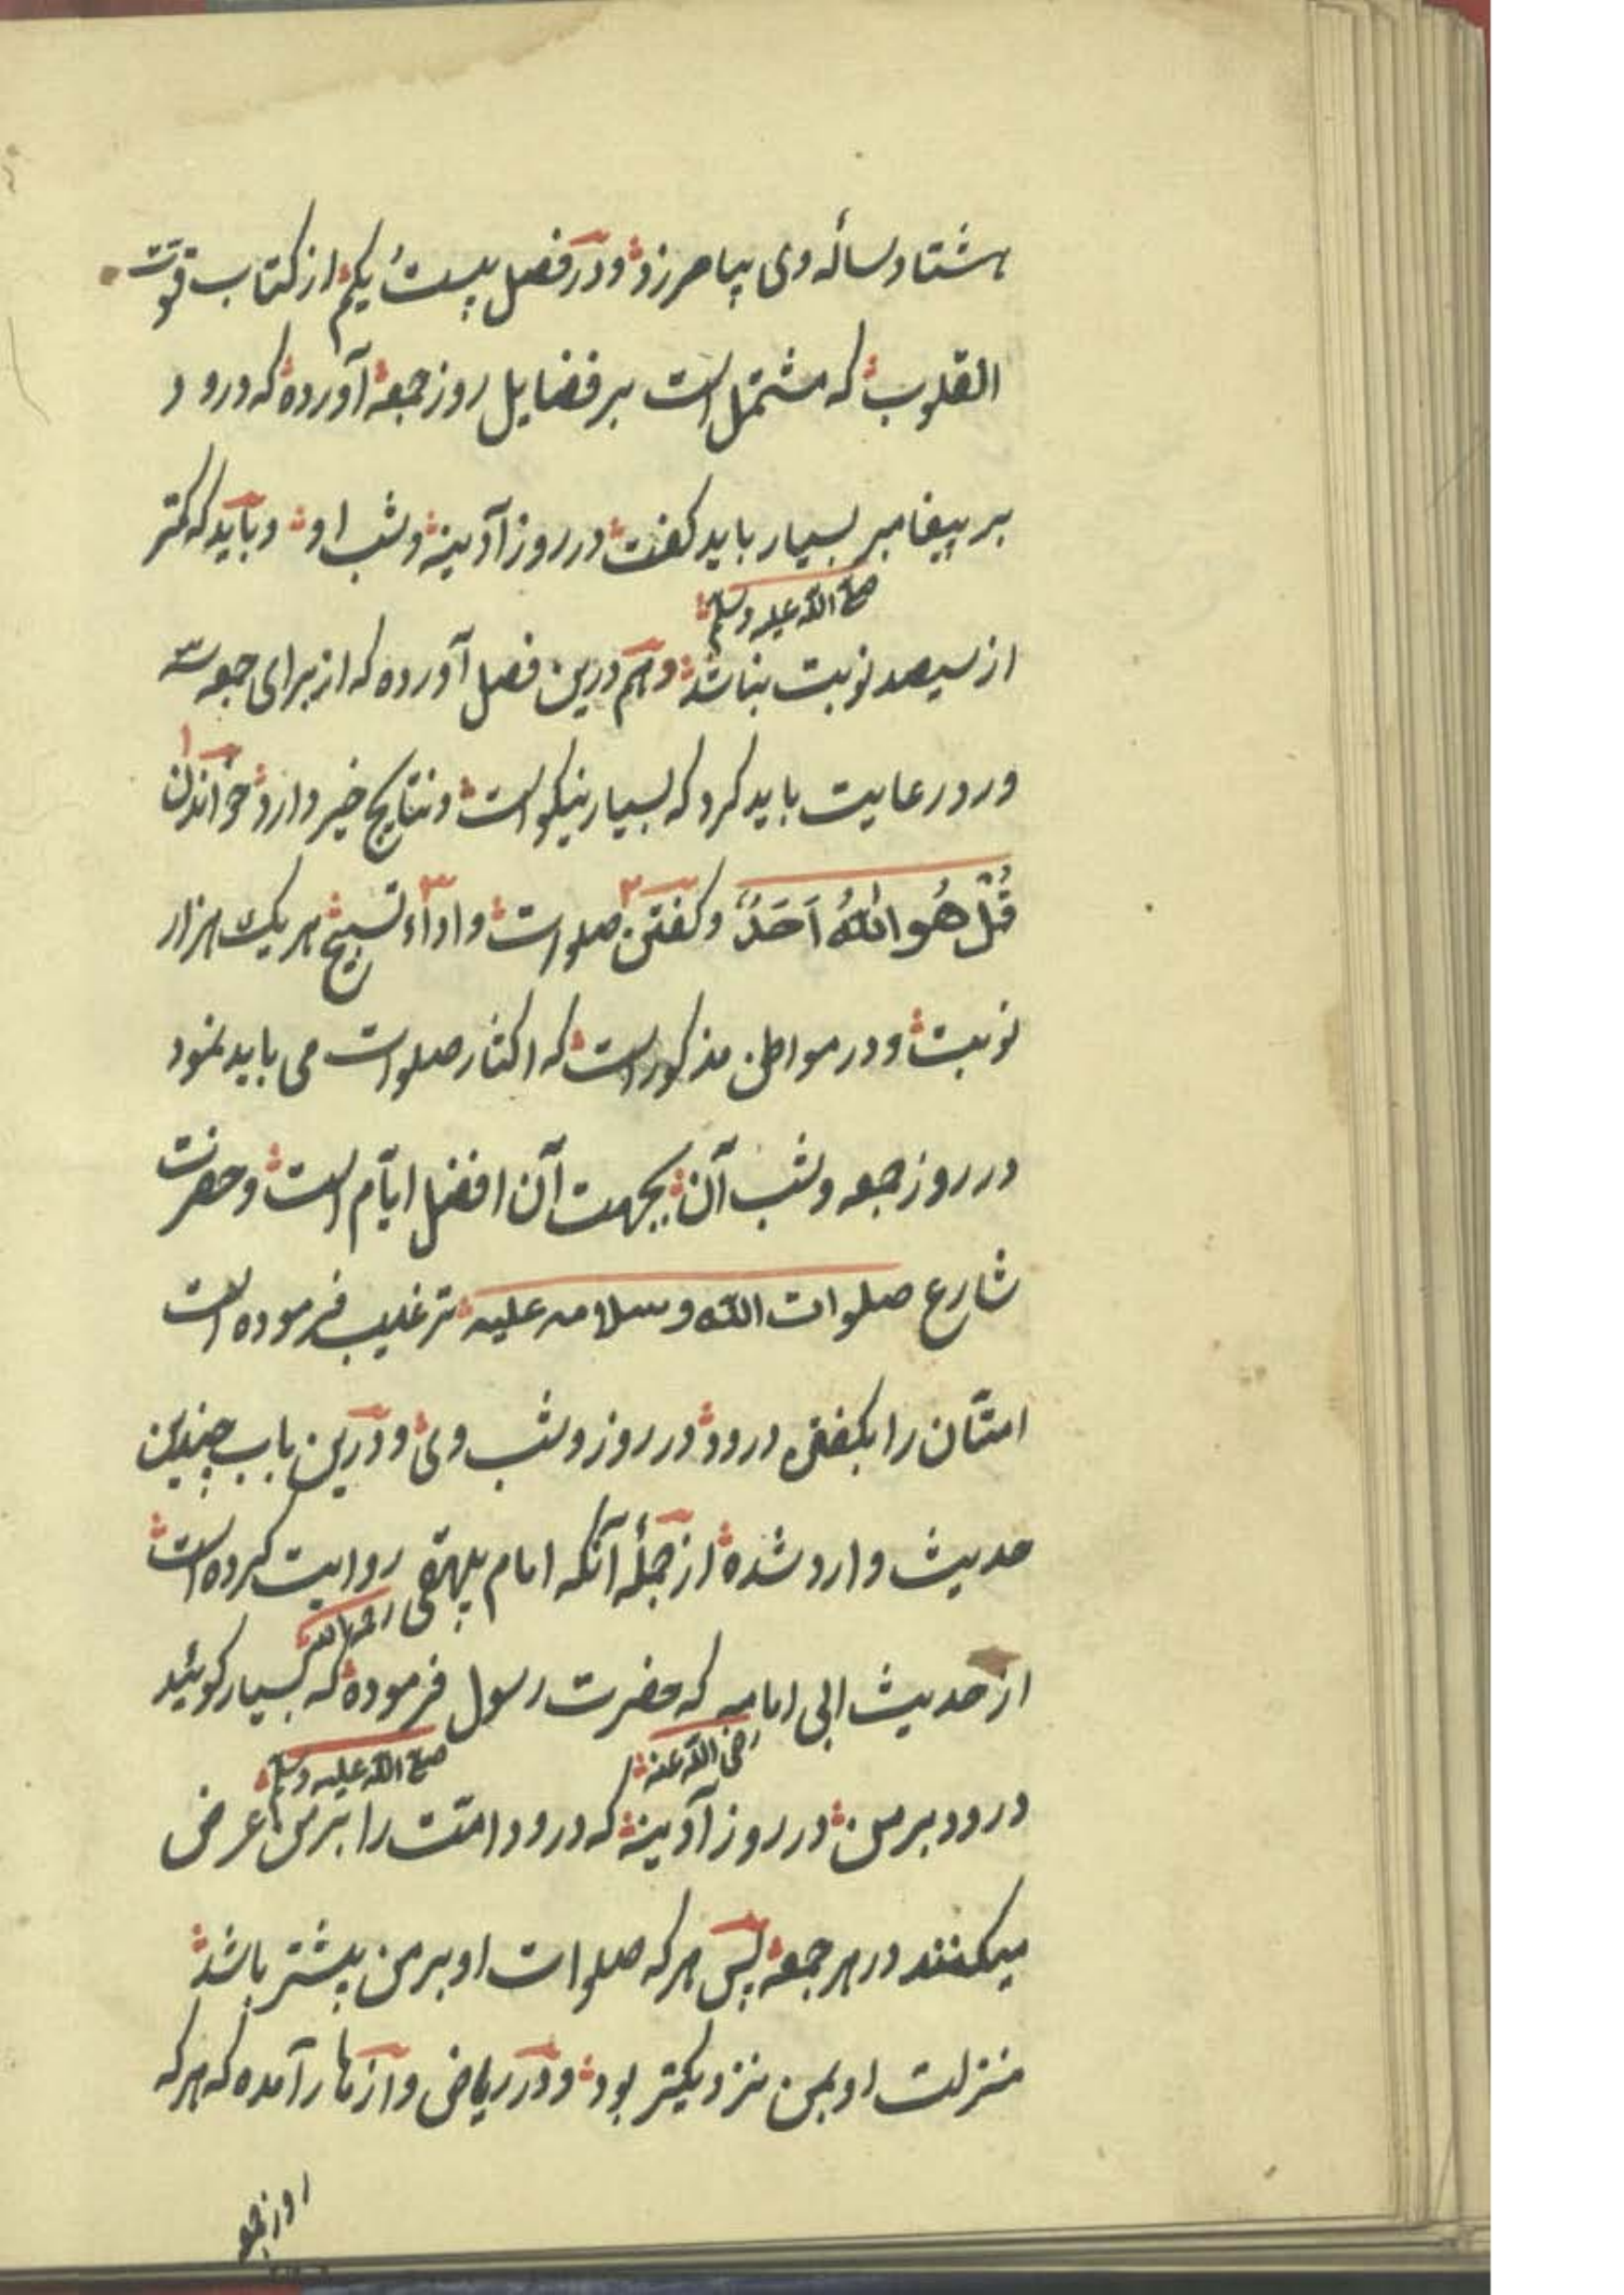 هشتاد ساله وی بیامرزد و در فصل بیست یکم از کتاب قوت
القلوب که مشتمل است بر فضایل روز جمعه آورده که درود
بر پیغامبر بسیار باید گفت در روز آدینه و شب او و باید که کمتر
صلی الله علیه وسلم
از سیصد نوبت نباشد و هم درین فصل آورده که از برای جمعه سه
ورد رعایت باید کرد که بسیار نیکو است و نتایج خیر دارد خواندن ۱
قُلْ هُوَ اللهُ اَحَدٌ و گفتن ۲ صلوات و اداء ۳ تسبیح هر یک هزار
نوبت و در مواطن مذکور است که اکثار صلوات می باید نمود
در روز جمعه و شب آن بجهت آن افضل ایّام است و حضرت
شارع صلوات الله وسلامه علیه ترغیب فرموده است
امتان را بگفتن درود در روز و شب وی و درین باب چندین
حدیث وارد شده از جملهٔ آنکه امام بیهقی روایت کرده است
رحمه الله
از حدیث ابی امامه که حضرت رسول فرموده که بسیار گوئید
رضی الله عنه صلی الله علیه وسلم
درود بر من در روز آدینه که درود امّت را بر من عرض
میکنند در هر جمعه پس هر که صلوات او بر من بیشتر باشد
منزلت او بمن نزدیکتر بود و در ریاض و ازهار آمده که هر که
روز جمعه